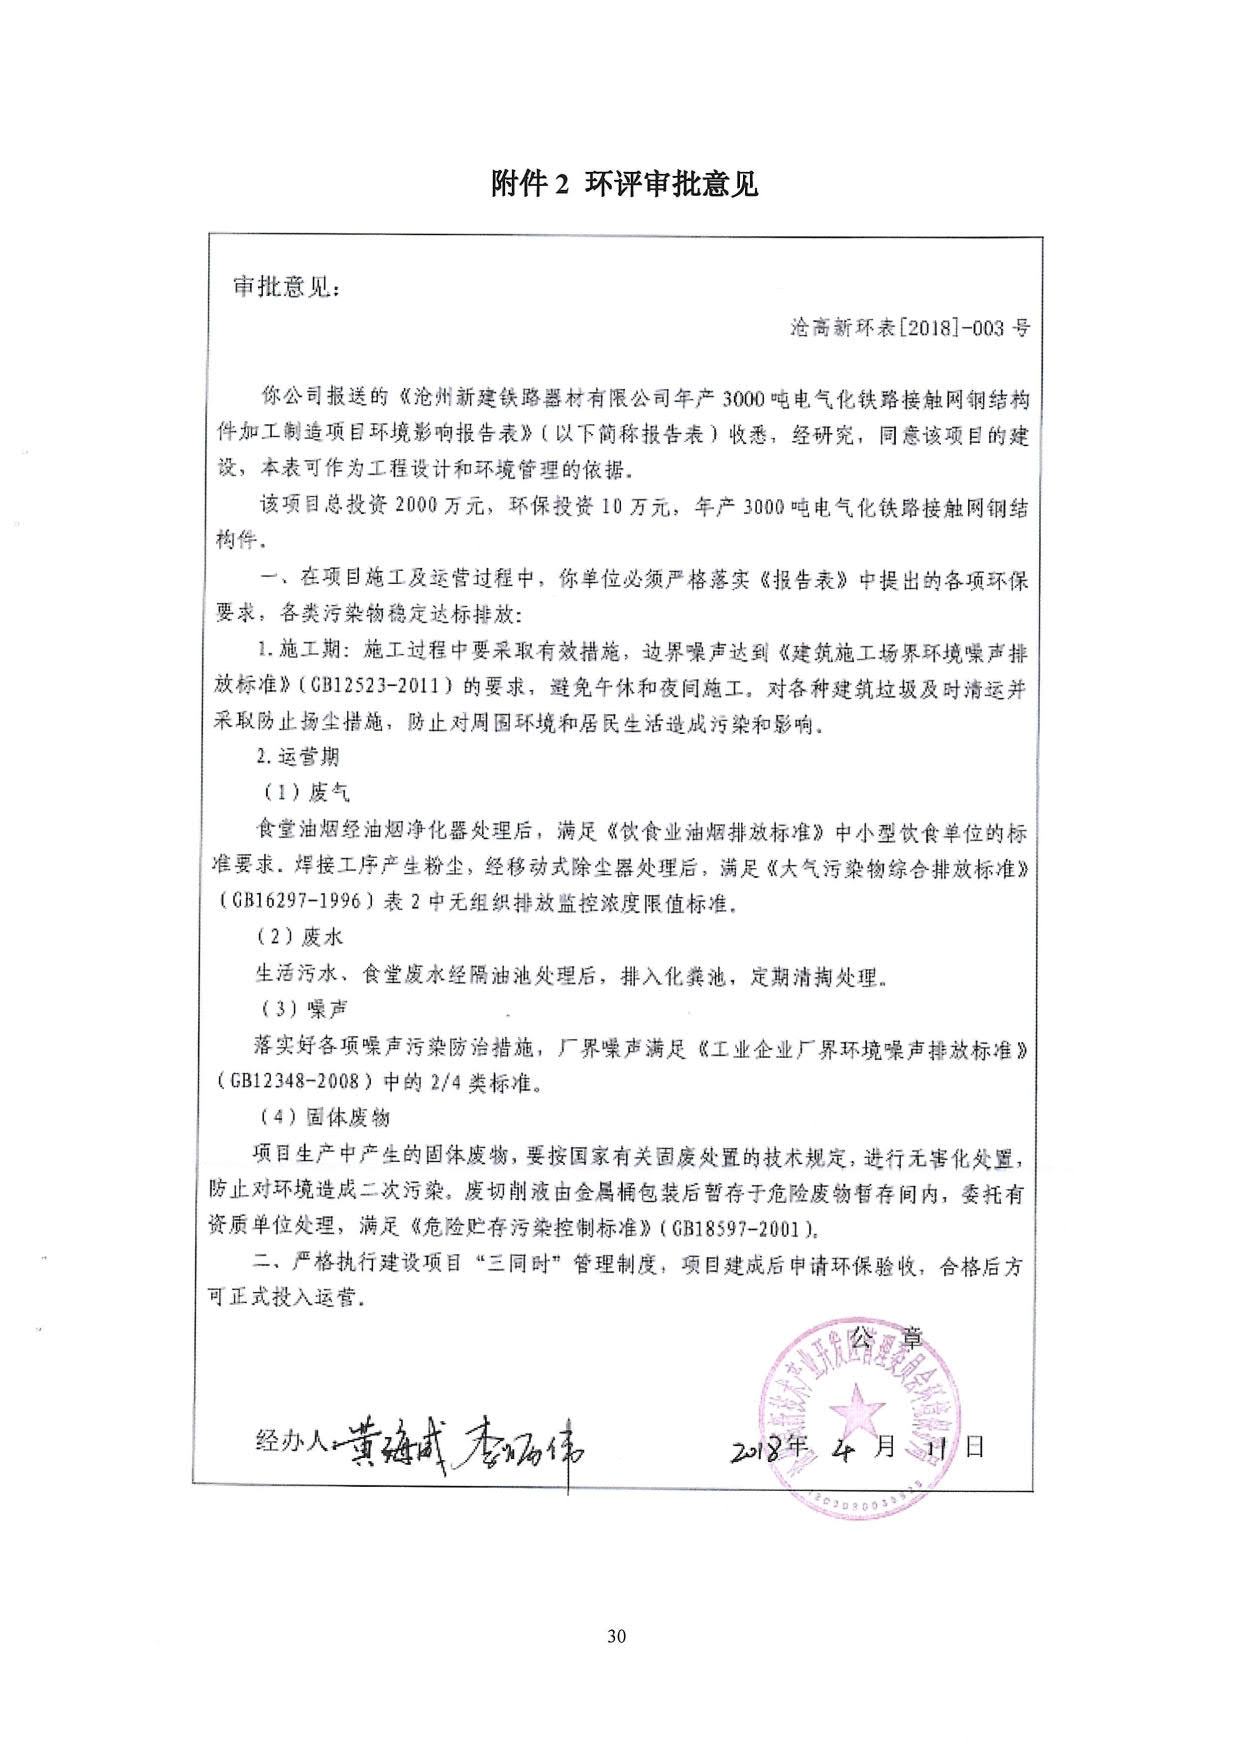 附件2 环评审批意见
审批意见：
沧高新环表[2018]-003 号
你公司报送的《沧州新建铁路器材有限公司年产 3000 吨电气化铁路接触网钢结构
件加工制造项目环境影响报告表》（以下简称报告表）收悉，经研究，同意该项目的建
设，本表可作为工程设计和环境管理的依据。
该项目总投资 2000 万元，环保投资 10 万元，年产 3000 吨电气化铁路接触网钢结
构件。
一、在项目施工及运营过程中，你单位必须严格落实《报告表》中提出的各项环保
要求，各类污染物稳定达标排放：
1.施工期：施工过程中要采取有效措施，边界噪声达到《建筑施工场界环境噪声排
放标准》（GB12523-2011）的要求，避免午休和夜间施工。对各种建筑垃圾及时清运并
采取防止扬尘措施，防止对周围环境和居民生活造成污染和影响。
2.运营期
（1）废气
食堂油烟经油烟净化器处理后，满足《饮食业油烟排放标准》中小型饮食单位的标
准要求。焊接工序产生粉尘，经移动式除尘器处理后，满足《大气污染物综合排放标准》
（GB16297-1996）表 2 中无组织排放监控浓度限值标准。
（2）废水
生活污水、食堂废水经隔油池处理后，排入化粪池，定期清掏处理。
（3）噪声
落实好各项噪声污染防治措施，厂界噪声满足《工业企业厂界环境噪声排放标准》
（GB12348-2008）中的 2/4 类标准。
（4）固体废物
项目生产中产生的固体废物，要按国家有关固废处置的技术规定，进行无害化处置，
防止对环境造成二次污染。废切削液由金属桶包装后暂存于危险废物暂存间内，委托有
资质单位处理，满足《危险贮存污染控制标准》（GB18597-2001）。
二、严格执行建设项目“三同时”管理制度，项目建成后申请环保验收，合格后方
可正式投入运营。
公 章
经办人：黄海威 李炳伟
2018年 4 月 11 日
30